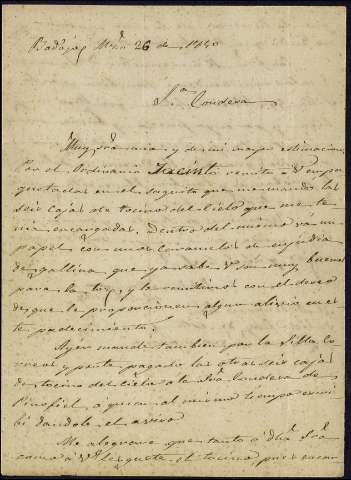 Badajoz Mzo 26 de 1840
Sra Condesa
Muy sra mia, y de mi mayor estimacion:
Por el Ordinario Jacinto remito a V. empa
quetadas en el saquito que me mando las
seis cajas de tocino del cielo que me te
nia encargadas. Dentro del mismo va un
papel con unos caramelos de enjundia
de gallina que ya sabe V. son muy buenos
para la tos, y la remitimos con el deseo
de que le proporcionen algun alivio en es
te padecimiento.
Ayer mande tambien por la Silla Co
rreos y porte pagado las otras seis cajas
de tocino del cielo a la Sra Condesa de
Peñafiel, a quien al mismo tiempo escri
bi dandole el aviso
Me alegrare que tanto a dha Sra
como a V. les guste el tocino, pues encar